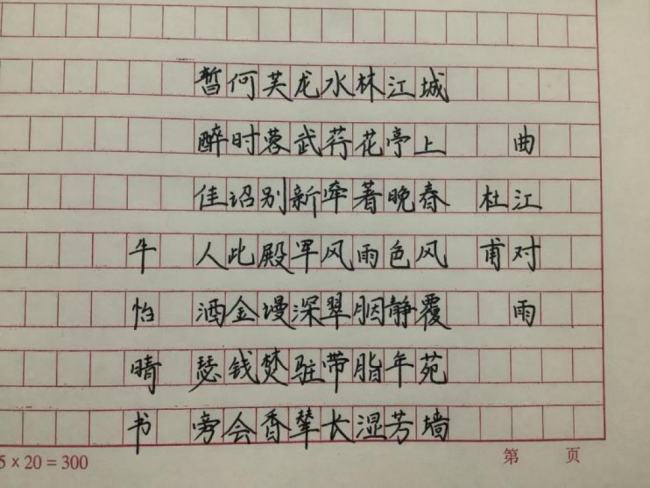 曲江对雨
杜甫
城上春风覆苑墙
江亭晚色静年芳
林花著雨胭脂湿
水荇牵风翠带长
龙武新军深驻辇
芙蓉别殿谩焚香
何时诏此金钱会
暂醉佳人洒瑟旁
牛怡晴书
第 页
5 × 20 = 300